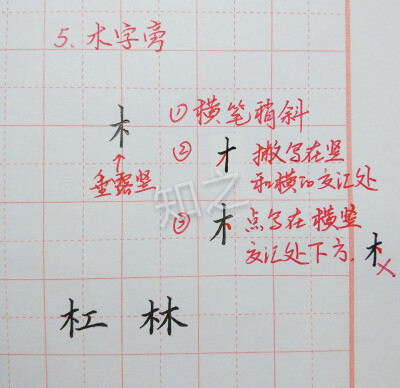 5、木字旁
木
↑
垂露竖
① 横笔稍斜
② 才 撇写在竖
和横的交汇处
③ 木 点写在横竖
交汇处下方.
木×
杠 林
知之